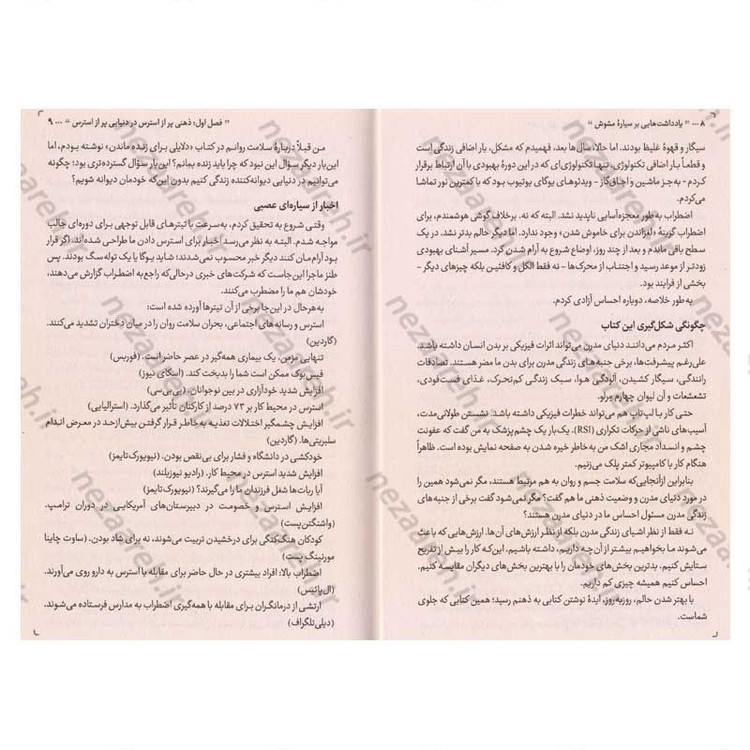 ۸ ... " یادداشت‌هایی بر سیارهٔ مشوش "
سیگار و قهوهٔ غلیظ بودند. اما حالا، سال‌ها بعد، فهمیدم که مشکل، بار اضافی زندگی است
و قطعاً بار اضافی تکنولوژی. تنها تکنولوژی‌ای که در این دورهٔ بهبودی با آن ارتباط برقرار
کردم - به‌جز ماشین و اجاق‌گاز - ویدئوهای یوگای یوتیوب بود که با کمترین نور تماشا
می‌کردم.
اضطراب به‌طور معجزه‌آسایی ناپدید نشد. البته که نه. برخلاف گوشی هوشمندم، برای
اضطراب گزینهٔ «لغزاندن برای خاموش شدن» وجود ندارد. اما دیگر حالم بدتر نشد. در یک
سطح باقی ماندم و بعد از چند روز، اوضاع شروع به آرام شدن کرد. مسیر آشنای بهبودی
زودتر از موعد رسید و اجتناب از محرک‌ها - نه فقط الکل و کافئین بلکه چیزهای دیگر -
بخشی از فرایند بود.
به‌طور خلاصه، دوباره احساس آزادی کردم.
چگونگی شکل‌گیری این کتاب
اکثر مردم می‌دانند دنیای مدرن می‌تواند اثرات فیزیکی بر بدن انسان داشته باشد.
علی‌رغم پیشرفت‌ها، برخی جنبه‌های زندگی مدرن برای بدن ما مضر هستند. تصادفات
رانندگی، سیگار کشیدن، آلودگی هوا، سبک زندگی کم‌تحرک، غذای فست‌فودی،
تشعشعات و آن لیوان چهارم مرلو.
حتی کار با لپ‌تاپ هم می‌تواند خطرات فیزیکی داشته باشد. نشستن طولانی‌مدت،
آسیب‌های ناشی از حرکات تکراری (RSI). یک‌بار یک چشم‌پزشک به من گفت که عفونت
چشم و انسداد مجاری اشک من به خاطر خیره شدن به صفحه نمایش بوده است. ظاهراً
هنگام کار با کامپیوتر کمتر پلک می‌زنیم.
بنابراین ازآنجایی‌که سلامت جسم و روان به هم مرتبط هستند، مگر نمی‌شود همین را
در مورد دنیای مدرن و وضعیت ذهنی ما هم گفت؟ مگر نمی‌شود گفت برخی از جنبه‌های
زندگی مدرن مسئول احساس ما در دنیای مدرن هستند؟
نه فقط از نظر اشیای زندگی مدرن بلکه از نظر ارزش‌های آن‌ها. ارزش‌هایی که باعث
می‌شوند ما بخواهیم بیشتر از آن چه داریم، داشته باشیم. این‌که کار را بیش از تفریح
ستایش کنیم. بدترین بخش‌های خودمان را با بهترین بخش‌های دیگران مقایسه کنیم.
احساس کنیم همیشه چیزی کم داریم.
با بهتر شدن حالم، روزبه‌روز، ایدهٔ نوشتن کتابی به ذهنم رسید؛ همین کتابی که جلوی
شماست.
" فصل اول: ذهنی پر از استرس در دنیایی پر از استرس " ... ۹
من قبلاً دربارهٔ سلامت روانم در کتاب «دلایلی برای زنده ماندن» نوشته بودم، اما
این‌بار دیگر سؤال این نبود که چرا باید زنده بمانم؟ این‌بار سؤال گسترده‌تری بود: چگونه
می‌توانیم در دنیایی دیوانه‌کننده زندگی کنیم بدون این‌که خودمان دیوانه شویم؟
اخبار از سیاره‌ای عصبی
وقتی شروع به تحقیق کردم، به‌سرعت با تیترهای قابل توجهی برای دوره‌ای جالب
مواجه شدم. البته به نظر می‌رسد اخبار برای استرس دادن ما طراحی شده‌اند. اگر قرار
بود آرام‌مان کنند دیگر خبر محسوب نمی‌شدند؛ شاید یوگا یا یک توله‌سگ بودند. پس
طنز ماجرا این‌جاست که شرکت‌های خبری درحالی‌که راجع‌به اضطراب گزارش می‌دهند،
خودشان هم ما را مضطرب می‌کنند.
به‌هرحال در این‌جا برخی از آن تیترها آورده شده است:
استرس و رسانه‌های اجتماعی، بحران سلامت روان را در میان دختران تشدید می‌کنند.
(گاردین)
تنهایی مزمن، یک بیماری همه‌گیر در عصر حاضر است. (فوربس)
فیس‌بوک ممکن است شما را بدبخت کند. (اسکای نیوز)
افزایش شدید خودآزاری در بین نوجوانان. (بی‌بی‌سی)
استرس در محیط کار بر ۷۳ درصد از کارکنان تأثیر می‌گذارد. (استرالیایی)
افزایش چشمگیر اختلالات تغذیه به خاطر قرار گرفتن بیش‌ازحد در معرض اندام
سلبریتی‌ها. (گاردین)
خودکشی در دانشگاه و فشار برای بی‌نقص بودن. (نیویورک‌تایمز)
افزایش شدید استرس در محیط کار. (رادیو نیوزیلند)
آیا ربات‌ها شغل فرزندان ما را می‌گیرند؟ (نیویورک‌تایمز)
افزایش استرس و خصومت در دبیرستان‌های آمریکایی در دوران ترامپ.
(واشنگتن‌پست)
کودکان هنگ‌کنگی برای درخشیدن تربیت می‌شوند، نه برای شاد بودن. (ساوت چاینا
مورنینگ پست)
اضطراب بالا: افراد بیشتری در حال حاضر برای مقابله با استرس به دارو روی می‌آورند.
(ال‌پائیس)
ارتشی از درمانگران برای مقابله با همه‌گیری اضطراب به مدارس فرستاده می‌شوند.
(دیلی‌تلگراف)
nezareh.ir